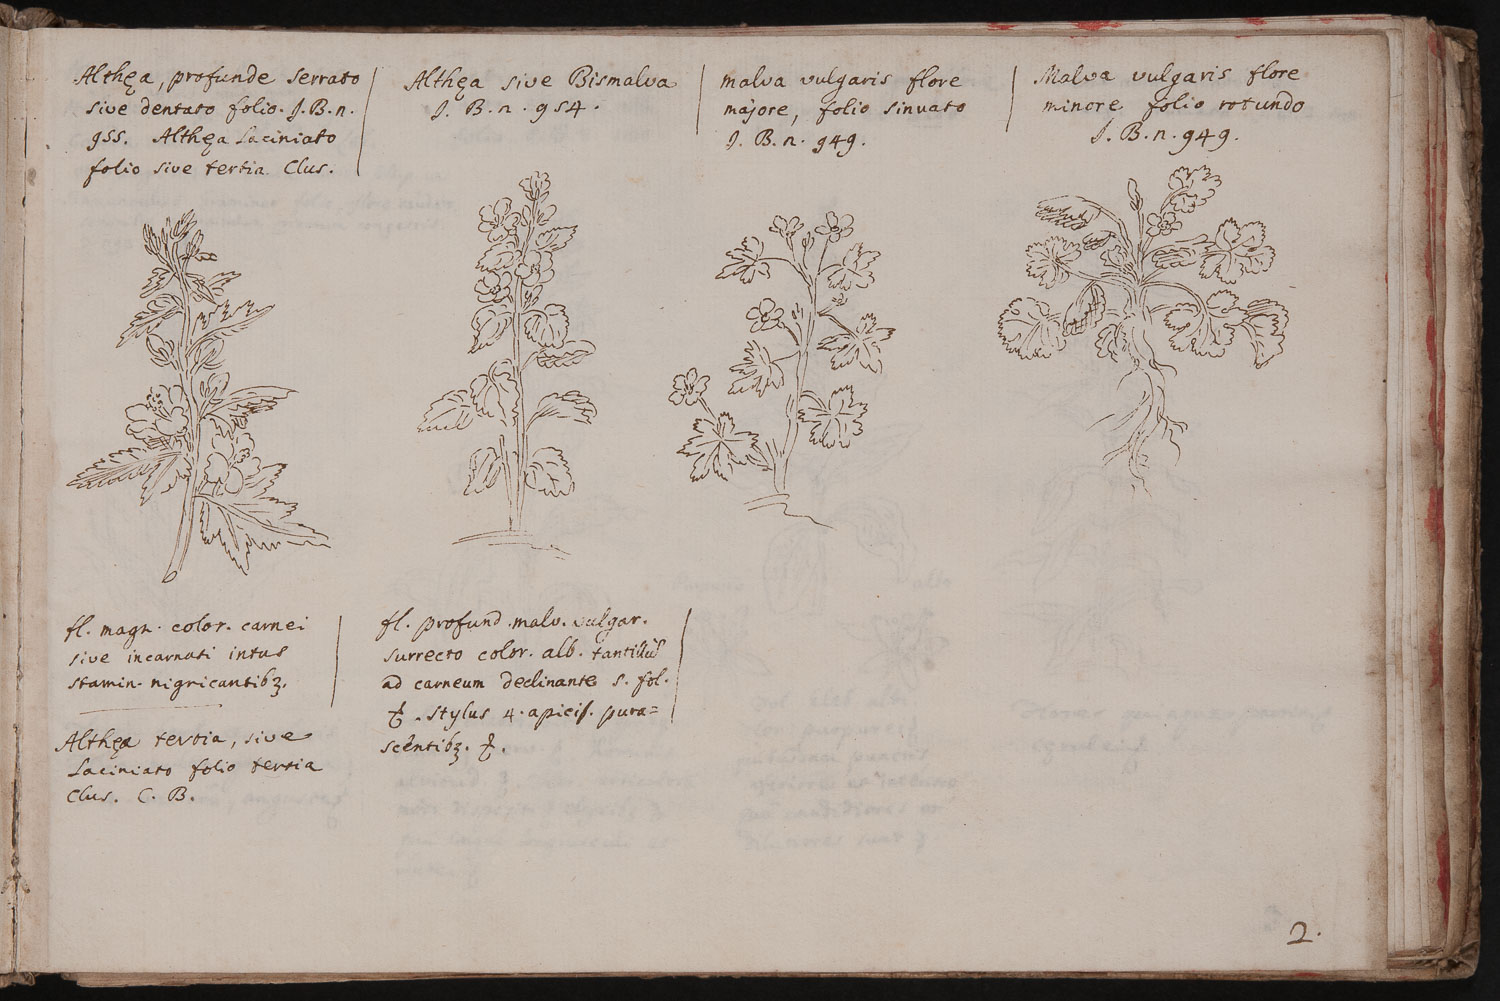 Althęa, profunde serrato
sive dentato folio. J. B. n.
955. Althęa Laciniato
folio sive tertia Clus.
Althęa sive Bismalva
J. B. n. 954.
malva vulgaris flore
majore, folio sinuato
J. B. n. 949.
Malva vulgaris flore
minore folio rotundo
J. B. n. 949.
fl. magn. color. carnei
sive incarnati intus
stamin. nigricantibꝫ.
Althęa tertia, sive
Laciniato folio tertia
Clus. C. B.
fl. profund. malv. vulgar.
surrecto color. alb. tantillū
ad carneum declinante s. fol.
. stylus 4. apicis. pura=
scentibꝫ.
2.